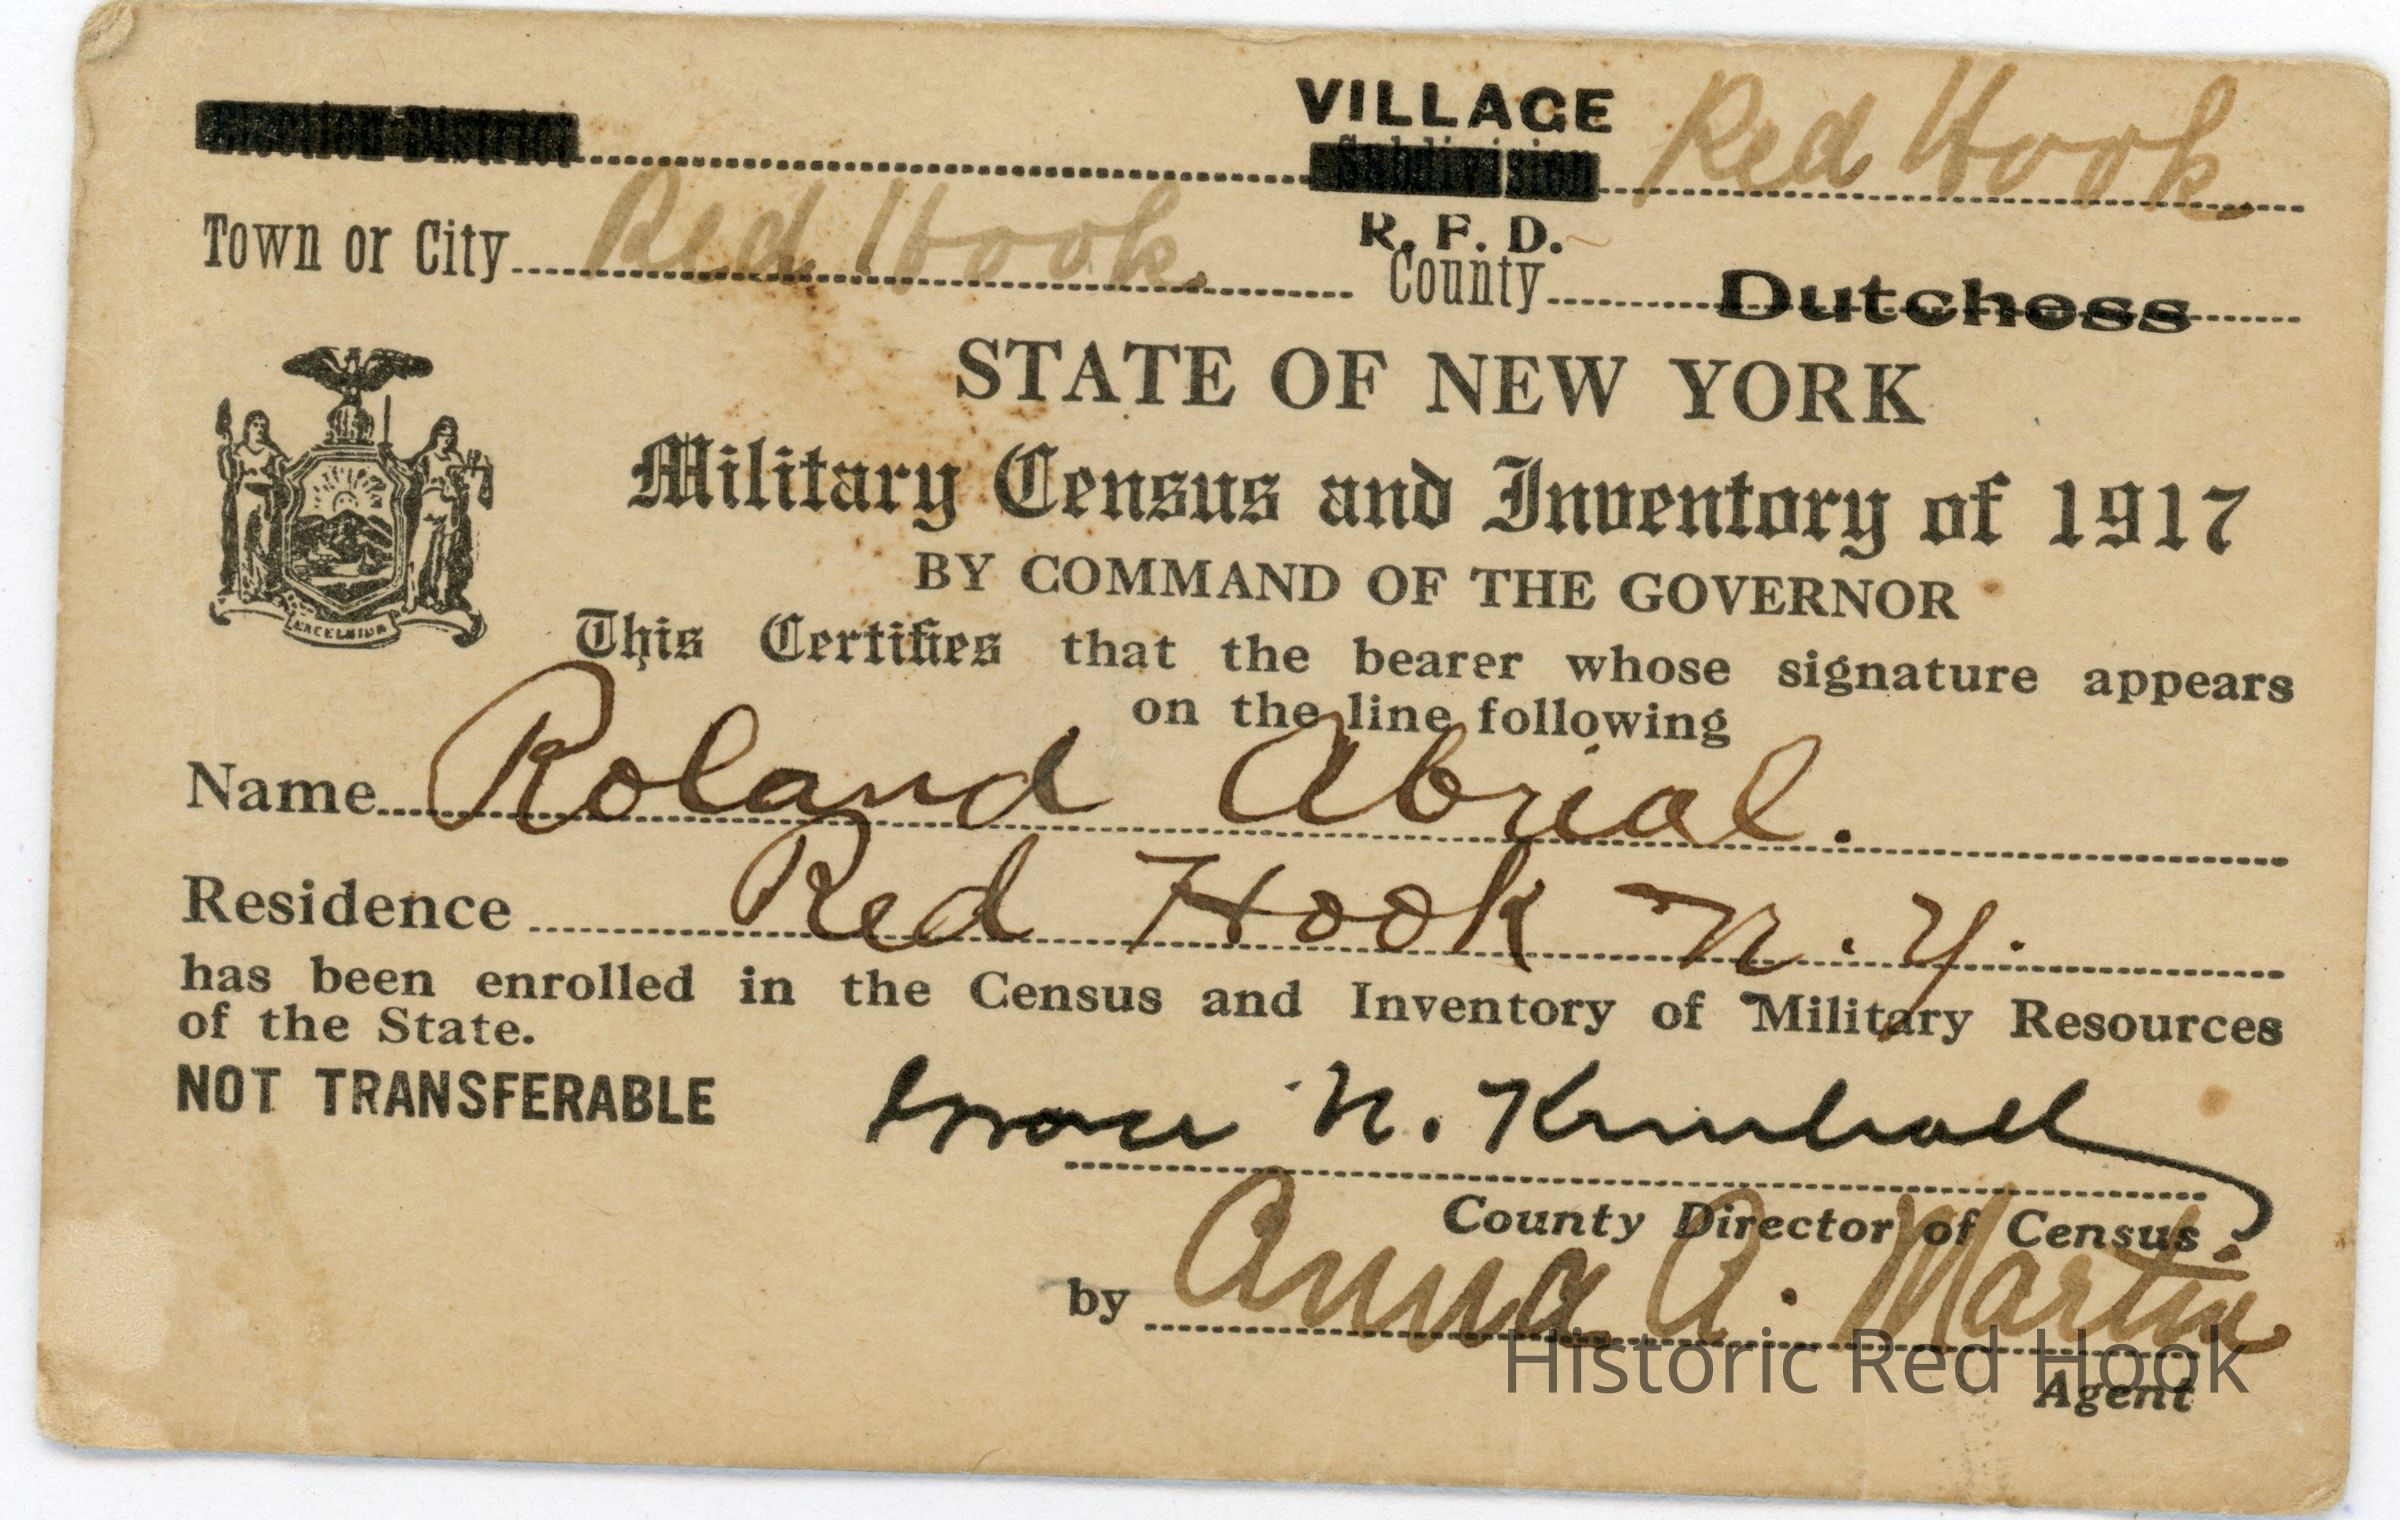 Election District VILLAGE Subdivision Red Hook
Town or City Red Hook. R. F. D. County Dutchess
STATE OF NEW YORK
Military Census and Inventory of 1917
BY COMMAND OF THE GOVERNOR
EXCELSIOR
This Certifies that the bearer whose signature appears
on the line following
Name Roland Abrial.
Residence Red Hook N. Y.
has been enrolled in the Census and Inventory of Military Resources
of the State.
NOT TRANSFERABLE
N. Kimball
County Director of Census.
by Anna A. Martin
Historic Red Hook
Agent